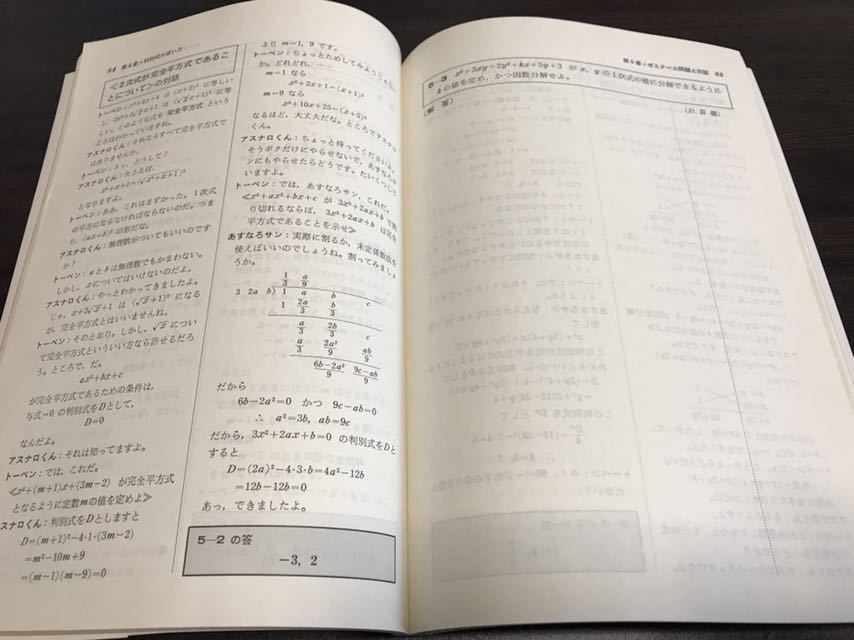 84 第5章・判別式の使い方
≪2次式が完全平方式であるこ
とについて≫の対話
トーベン：x²+4x+4 は (x+2)² に等しい
とはわかっていますね。
アスナロくん：それならすべて完全平方式で
はありませんか。
トーベン：えっ、どうして？
アスナロくん：たとえば、
となりますよ。
トーベン：ああ、これはまずかった。1次式
の平方にならなければならないのだ。つま
り、(ax+b)² の形だな。
アスナロくん：無理数がついてもいいのです
か？
トーベン：aとbは無理数でもかまわない。
しかし、xについてはいけないのだよ。
アスナロくん：やっとわかってきましたよ。
じゃ、x+2√x+1 は (√x+1)² になる
が、完全平方式とはいいませんね。
トーベン：そのとおり。しかし、√x につい
て完全平方式といういい方なら許せるだろ
う。ところで、だ。
ax²+bx+c
が完全平方式であるための条件は、
与式=0 の判別式をDとして、
D=0
なんだよ。
アスナロくん：それは知ってますよ。
トーベン：では、これだ。
≪x²+(m+1)x+(3m-2) が完全平方式
となるように定数mの値を定めよ≫
アスナロくん：判別式をDとしますと
D=(m+1)²-4・1・(3m-2)
=m²-10m+9
=(m-1)(m-9)=0
より m=1, 9 です。
トーベン：ちょっとためしてみよう
か。どれどれ、……
m=1 なら
x²+2x+1=(x+1)²
m=9 なら
x²+10x+25=(x+5)²
なるほど、大丈夫だな。ところでアスナロ
くん。
アスナロくん：ちょっと待ってください。
そうボクだけにやらせないで、あすなろサ
ンにもやらせたらどうです。たいくつして
いますよ。
トーベン：では、あすなろサン、これだ。
≪x³+ax²+bx+c が 3x²+2ax+b で割
り切れるならば、3x²+2ax+b は完全
平方式であることを示せ≫
あすなろサン：実際に割るか、未定係数法を
使えばいいのでしょうね。割ってみましょ
うか。
1/3 a/9
3 2a b)1 a b c
1 2a/3 b/3
a/3 2b/3 c
a/3 2a²/9 ab/9
6b-2a²/9 9c-ab/9
だから
6b-2a²=0 かつ 9c-ab=0
∴ a²=3b, ab=9c
だから、3x²+2ax+b=0 の判別式をDと
すると
D=(2a)²-4・3・b=4a²-12b
=12b-12b=0
あっ、できましたよ。
5—2 の答
-3, 2
第5章・ゼミナール問題と対話 85
5—3 x²+3xy+2y²+kx+5y+3 が x, y の1次式の積に分解できるように
kの値を定め、かつ因数分解せよ。
(解 答) (計 算 欄)